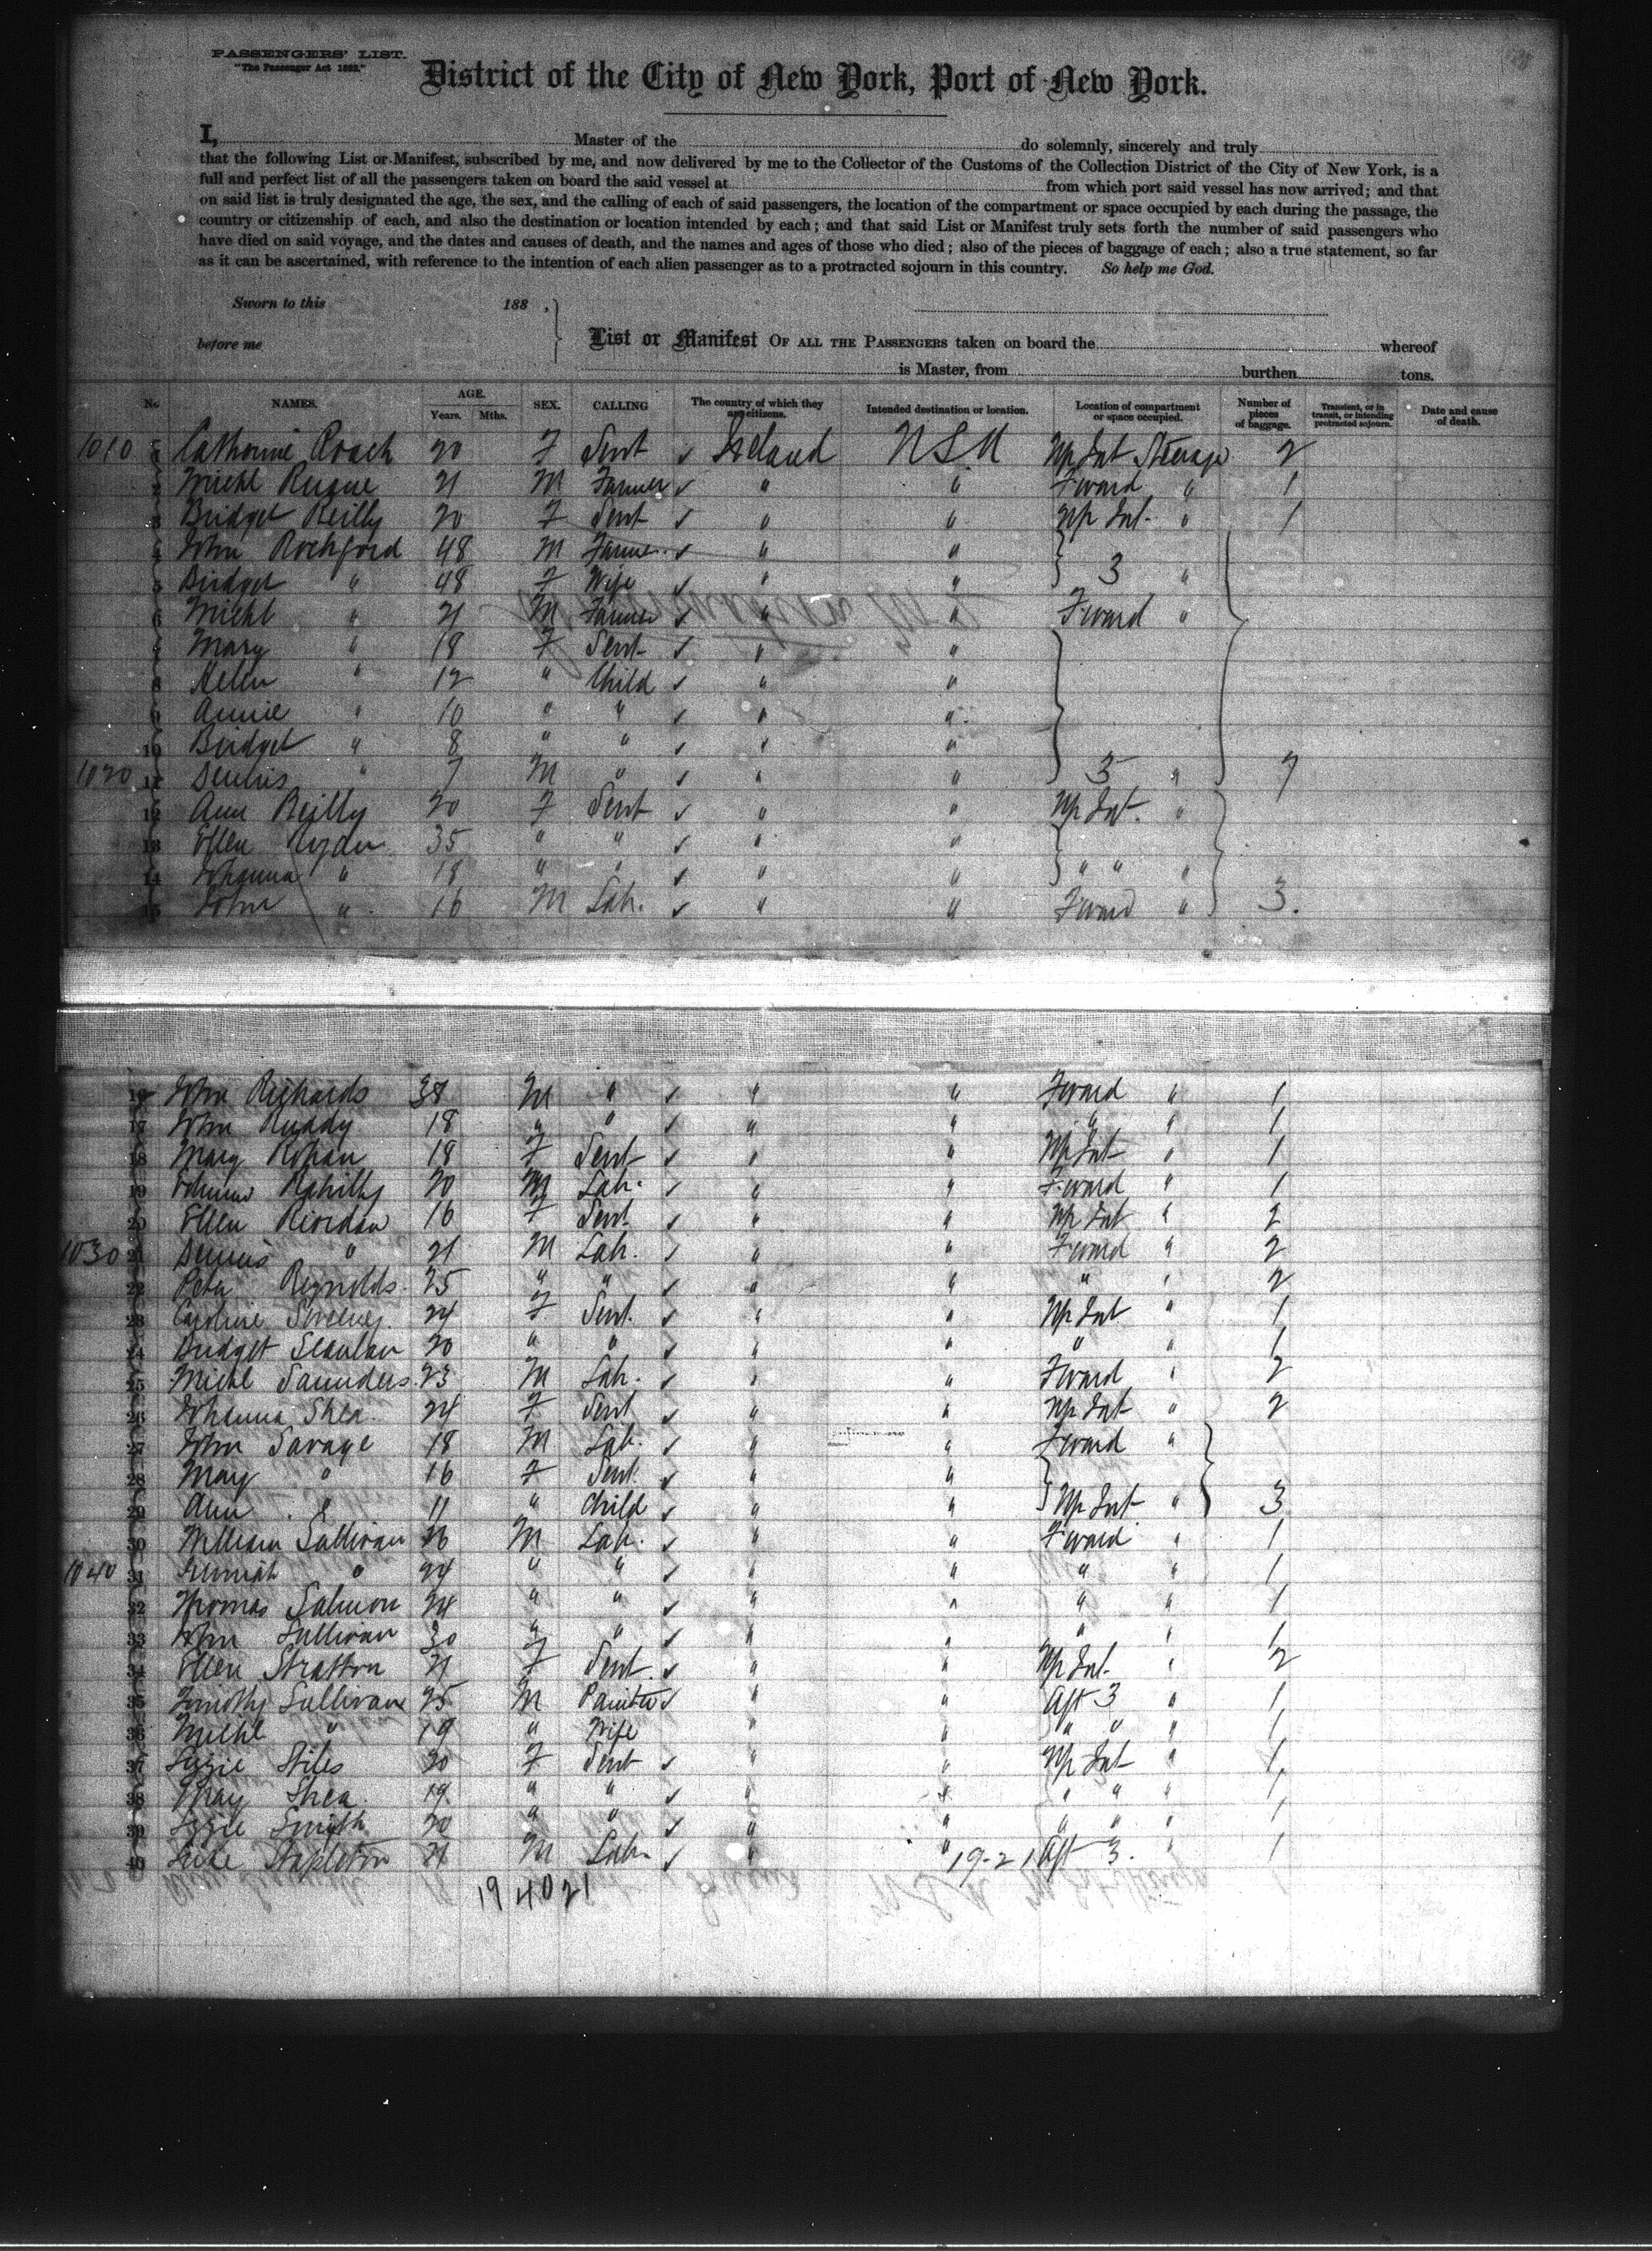 PASSENGERS' LIST.
"The Passenger Act 1882."
District of the City of New York, Port of New York.
I, Master of the do solemnly, sincerely and truly
that the following List or Manifest, subscribed by me, and now delivered by me to the Collector of the Customs of the Collection District of the City of New York, is a
full and perfect list of all the passengers taken on board the said vessel at from which port said vessel has now arrived; and that
on said list is truly designated the age, the sex, and the calling of each of said passengers, the location of the compartment or space occupied by each during the passage, the
country or citizenship of each, and also the destination or location intended by each; and that said List or Manifest truly sets forth the number of said passengers who
have died on said voyage, and the dates and causes of death, and the names and ages of those who died; also of the pieces of baggage of each; also a true statement, so far
as it can be ascertained, with reference to the intention of each alien passenger as to a protracted sojourn in this country. So help me God.
Sworn to this 188 .
before me
List or Manifest OF ALL THE PASSENGERS taken on board the whereof
is Master, from burthen tons.
No NAMES. AGE. Years. Mths. SEX. CALLING The country of which they are citizens. Intended destination or location. Location of compartment or space occupied. Number of pieces of baggage. Transient, or in transit, or intending protracted sojourn. Date and cause of death.
1010 Catherine Roach 20 F Servt ✓ Ireland USA Up Int Steerage 2
2 Michl 21 M Farmer ✓ " " Forward " 1
3 Bridget Reilly 20 F Servt ✓ " " Up Int. " 1
4 John Rochford 48 M Farmer ✓ " "
5 Bridget " 48 F Wife ✓ " " 3 "
6 Michl " 21 M Farmer ✓ " " Forward "
7 Mary " 18 F Servt ✓ " "
8 Helen " 12 " Child ✓ " "
9 Annie " 10 " " ✓ " "
10 Bridget " 8 " " ✓ " "
1020 11 Dennis " 7 M " ✓ " " 3 " 7
12 Ann Reilly 20 F Servt ✓ " " Up Int. "
13 Ellen Ryder 35 " " ✓ " "
14 Johanna " 18 " " ✓ " " " " "
15 John " 16 M Lab. ✓ " " Forward " 3.
16 John Richards 38 M " ✓ " " Forward " 1
17 John Ruddy 18 " " ✓ " " " " 1
18 Mary Rohan 18 F Servt ✓ " " Up Int " 1
19 Rahilly 20 M Lab. ✓ " " Forward " 1
20 Ellen Riordan 16 F Servt ✓ " " Up Int " 2
1030 21 Dennis " 21 M Lab. ✓ " " Forward " 2
22 Peter Reynolds 25 " " ✓ " " " " 2
23 Caroline Sweeney 24 F Servt. ✓ " " Up Int " 1
24 Bridget Scanlan 20 " " ✓ " " " 1
25 Michl Saunders 23 M Lab. ✓ " " Forward " 2
26 Johanna Shea 24 F Servt ✓ " " Up Int " 2
27 John Savage 18 M Lab. ✓ " " Forward "
28 Mary " 16 F Servt. ✓ " "
29 Ann " 11 " Child ✓ " " Up Int " 3
30 William Sullivan 26 M Lab. ✓ " " Forward " 1
1040 31 Jeremiah " 24 " " ✓ " " " " 1
32 Thomas Salmon 24 " " ✓ " " " " 1
33 John Sullivan 30 " " ✓ " " " " 1
34 Ellen Stratton 21 F Servt. ✓ " " Up Int. " 2
35 Timothy Sullivan 25 M Painter ✓ " " Aft 3 " 1
36 Michl " 19 " Wife " " " " " 1
37 Lizzie Stiles 20 F Servt ✓ " " Up Int " 1
38 Mary Shea 19 " " ✓ " " " " " 1
39 Lizzie Smyth 20 " " ✓ " " " " " 1
40 Luke Stapleton 21 M Lab. ✓ " " 19-21 Aft 3. " 1
19 40 21